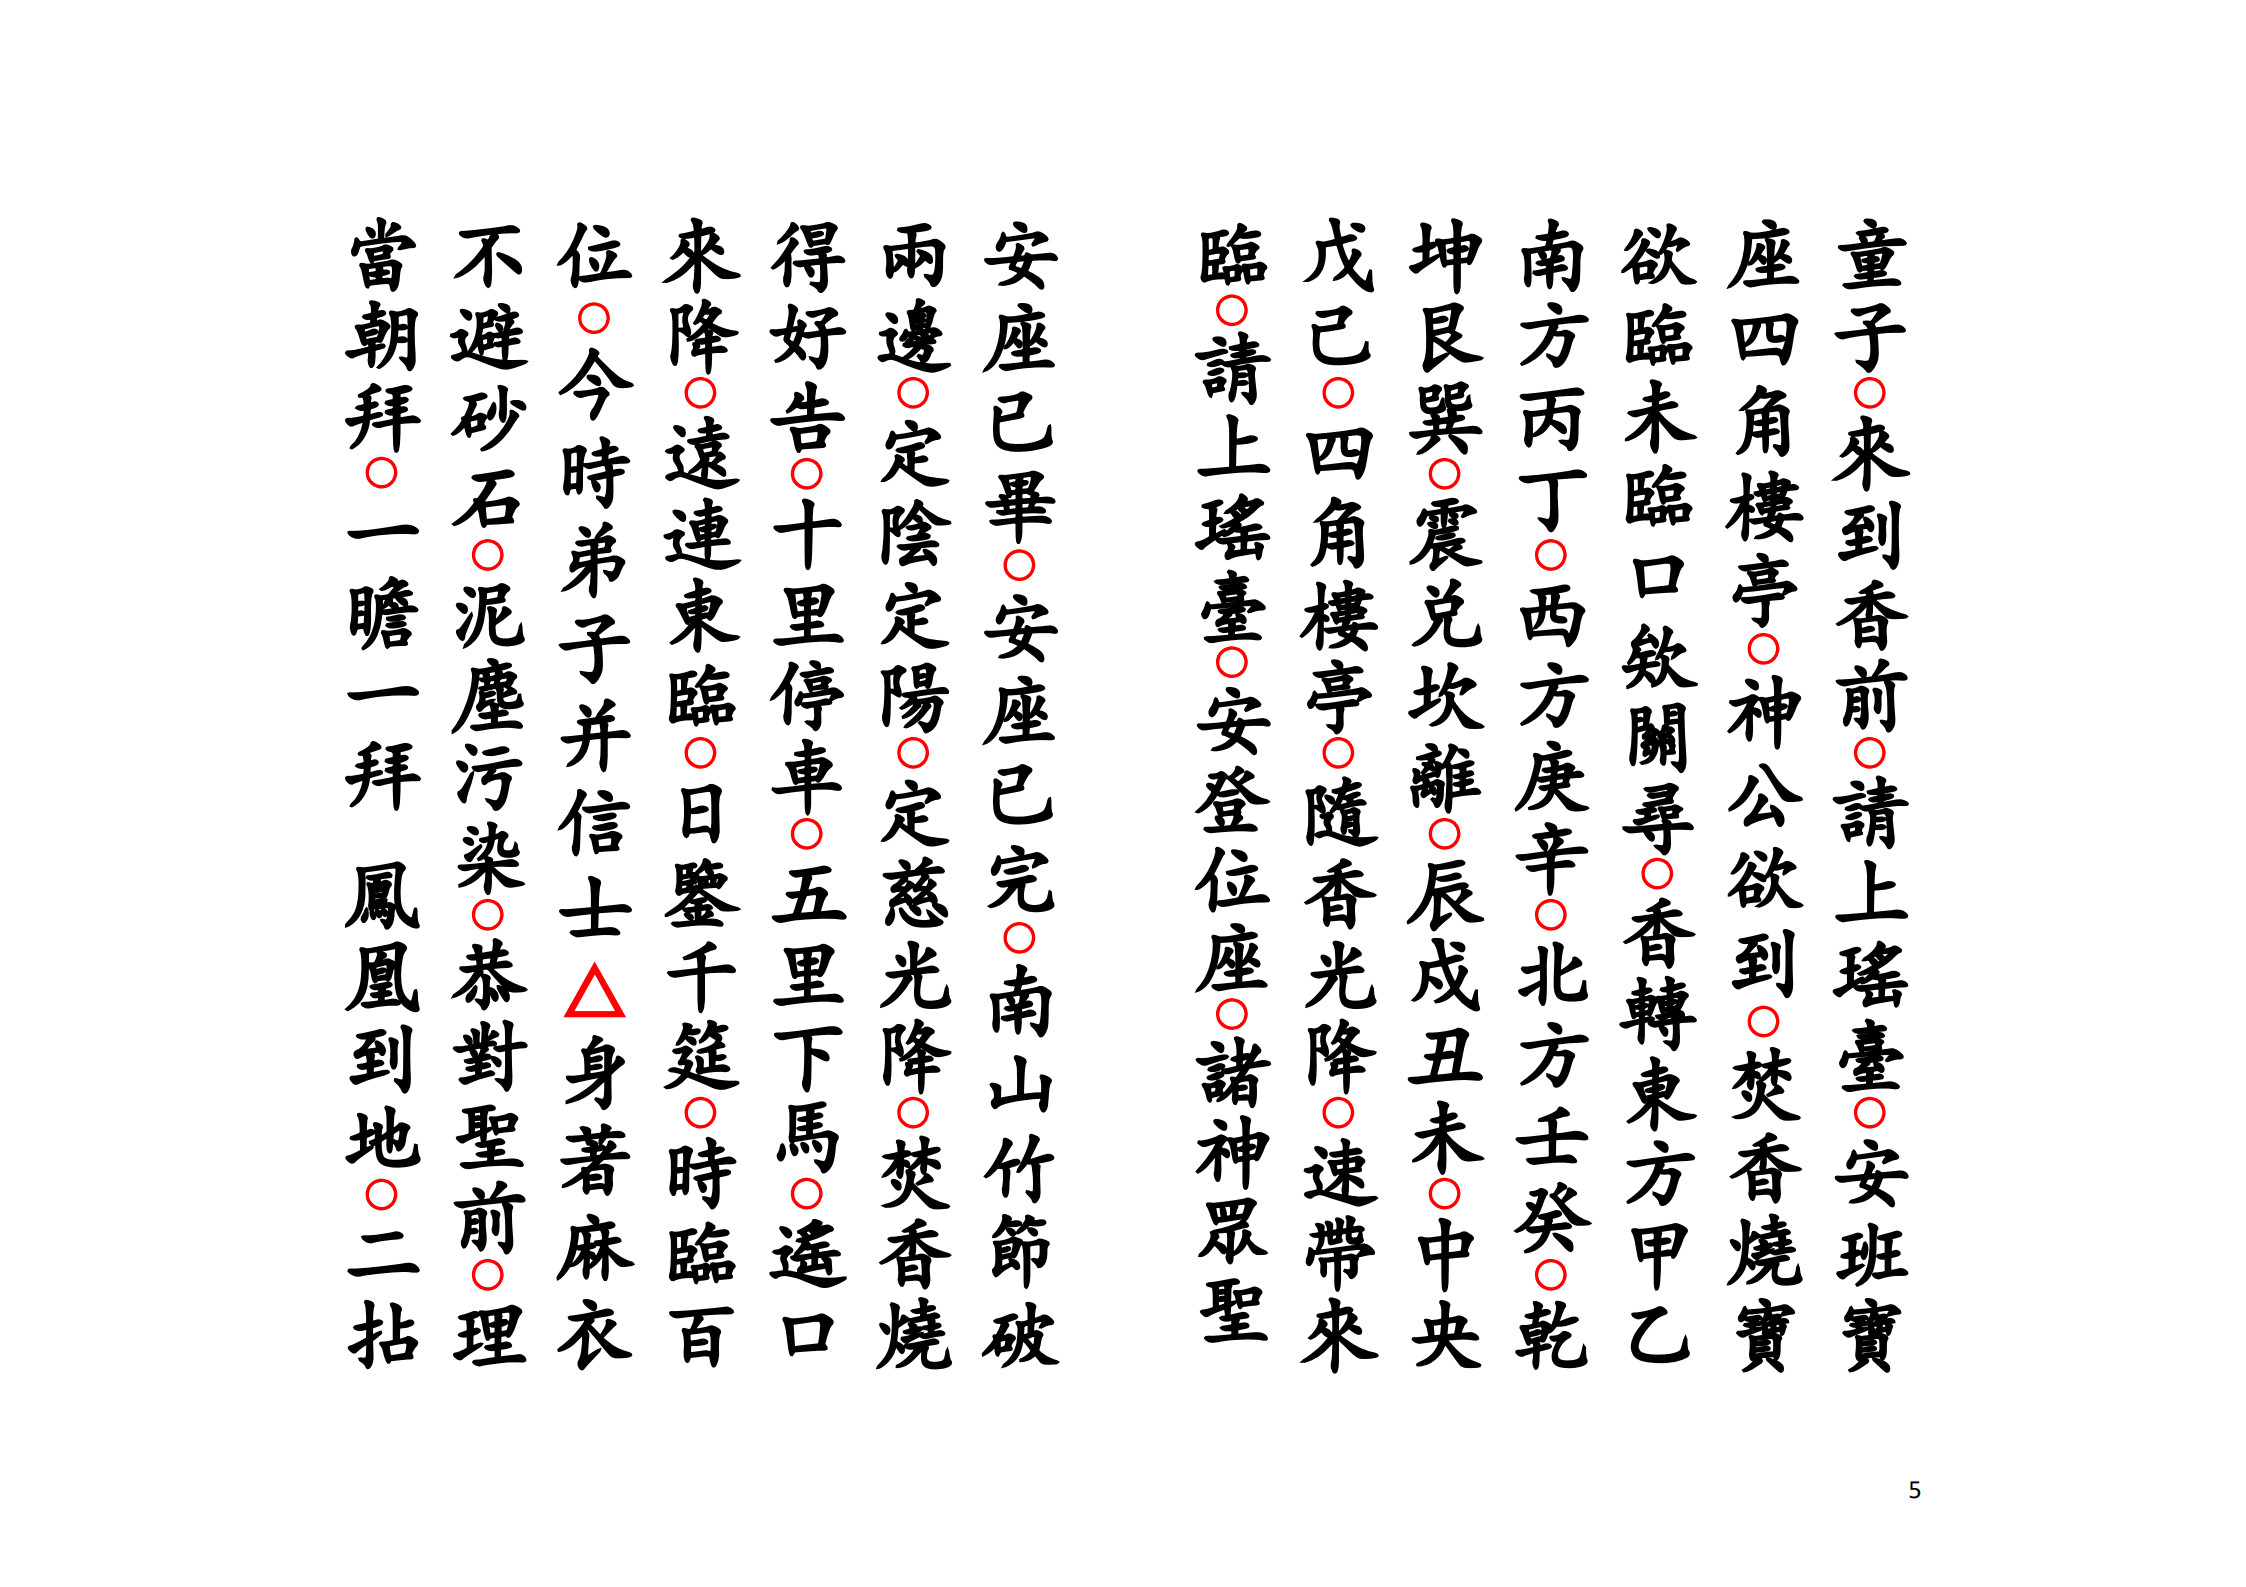 童子○來到香前○請上瑤臺○安班寶
座四角樓亭○神公欲到○焚香燒寶
欲臨未臨口欸關尋○香轉東方甲乙
南方丙丁○西方庚辛○北方壬癸○乾
坤艮巽○震兌坎離○辰戍丑未○中央
戊己○四角樓亭○隨香光降○速帶來
臨○請上瑤臺○安登位座○諸神眾聖
安座已畢○安座已完○南山竹節破
兩邊○定陰定陽○定慈光降○焚香燒
得好告○十里停車○五里下馬○遙口
來降○遠連東臨○日鑒千筵○時臨百
位○今時弟子并信士△身著麻衣
不避砂石○泥塵污染○恭對聖前○理
當朝拜○一瞻一拜 鳳凰到地○二拈
5